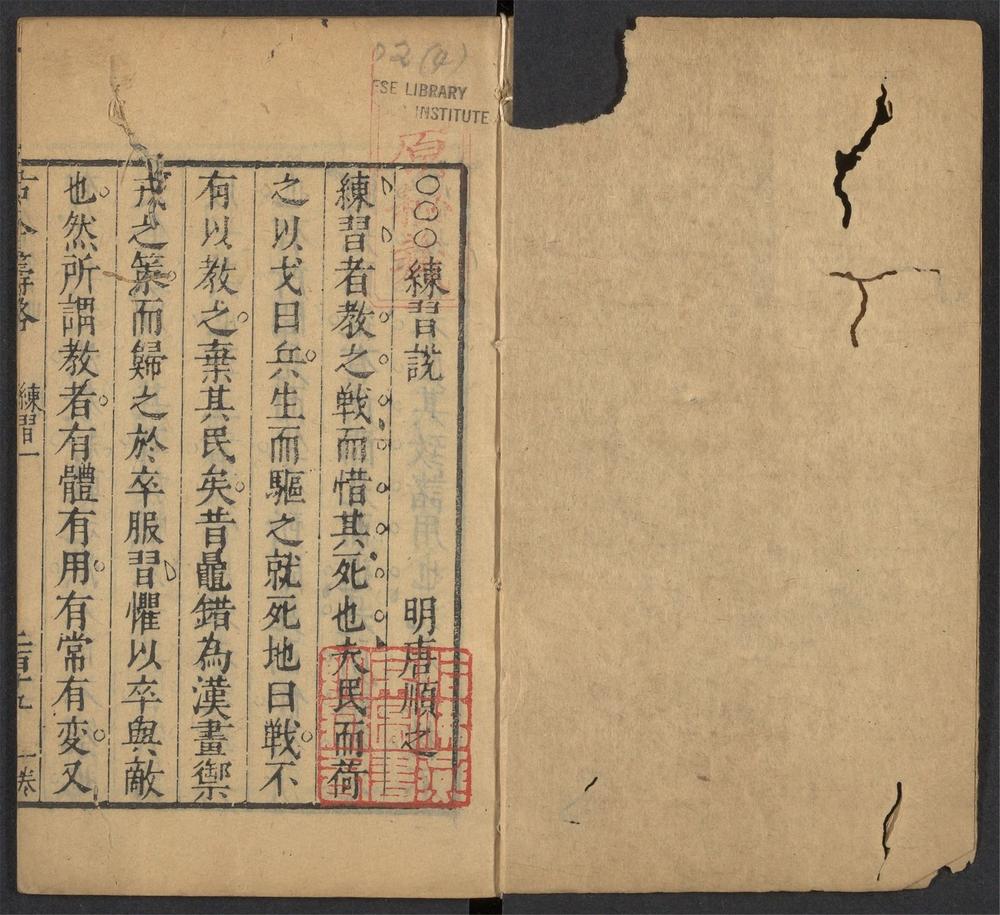 02(4)
ESE LIBRARY
INSTITUTE
○○○練習説　明唐順之
練習者教之戦而惜其死也夫民而荷
之以戈曰兵生而驅之就死地曰戦不
有以教之棄其民矣昔鼂錯為漢畫禦
戎之策而歸之於卒服習懼以卒與敵
也然所謂教者有體有用有常有変又
古今籌略　練習一　一卷